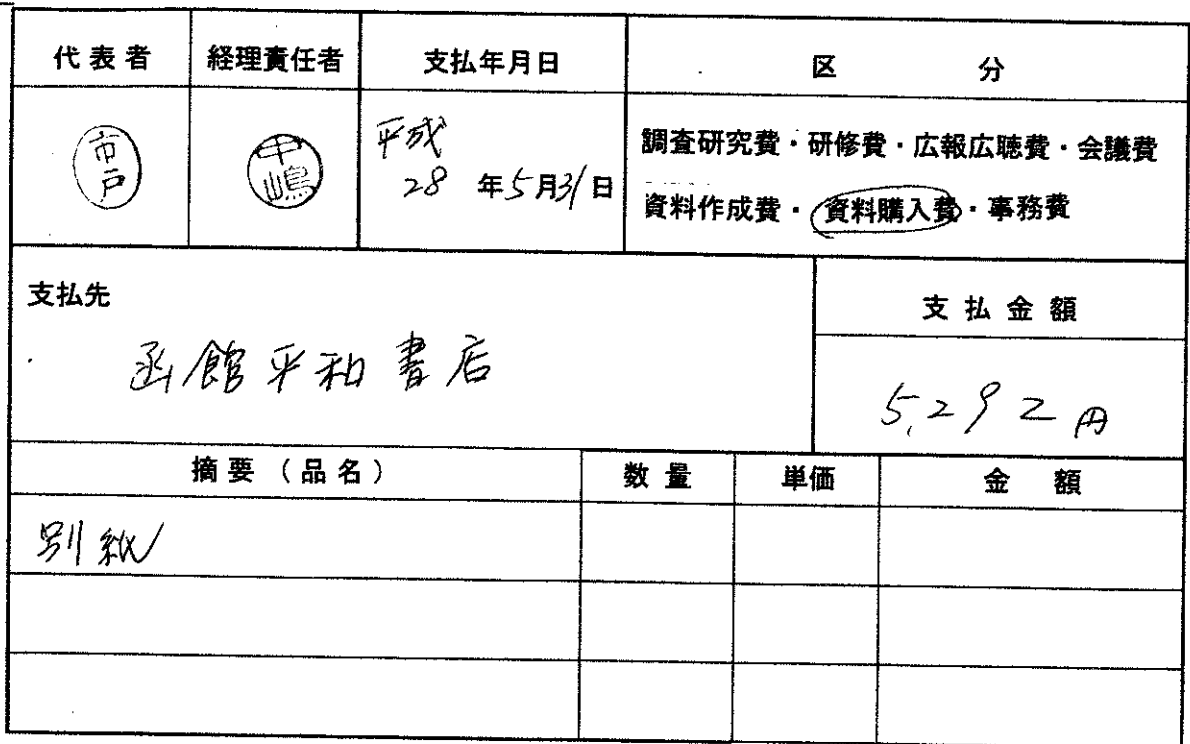 代表者 経理責任者 支払年月日 区 分
市戸 中嶋 平成
28 年5月31日
調査研究費・研修費・広報広聴費・会議費
資料作成費・資料購入費・事務費
支払先 支払金額
函館平和書店
5,292円
摘要(品名) 数量 単価 金 額
別紙